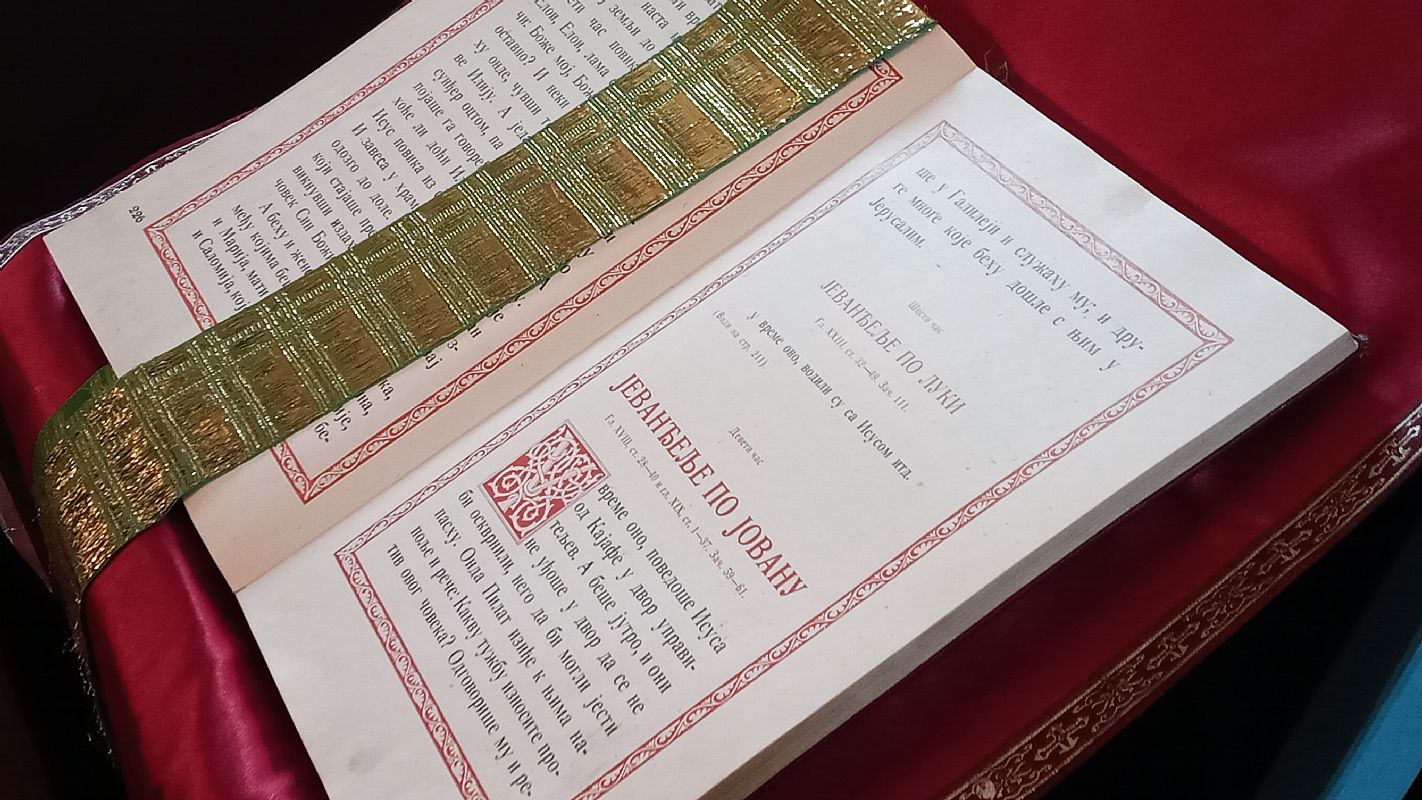 226
у земљи до
ти час пови
Елои, Елои, лама
че: Боже мој, Бож
оставио? И неки
ху онде, чувши
ве Илију. А је
сунђер оцтом, на
појаше га говоре
хоће ли доћи И
Исус повика из
И завеса у храм
одозго до доле.
који стајаше пр
викнувши издах
човек Син Божи
А беху и жене
међу којима бе
и Марија, мати
и Саломија, које
ше у Галилеји и служаху му, и дру-
ге многе које беху дошле с њим у
Јерусалим.
Шести час
ЈЕВАНЂЕЉЕ ПО ЛУКИ
Гл. XXIII, ст. 32—49. Зач. 111.
у време оно, водили су са Исусом итд.
(Види на стр. 211)
Девети час
ЈЕВАНЂЕЉЕ ПО ЈОВАНУ
Гл. XVIII, ст. 28—40 и гл. XIX, ст. 1—37. Зач. 59—61.
време оно, поведоше Исуса
од Кајафе у двор управи-
тељев. А беше јутро, и они
не уђоше у двор да се не
би осквринли, него да би могли јести
пасху. Онда Пилат изиђе к њима на-
поље и рече: Какву тужбу износите про-
тив овог човека? Одговорише му и ре-